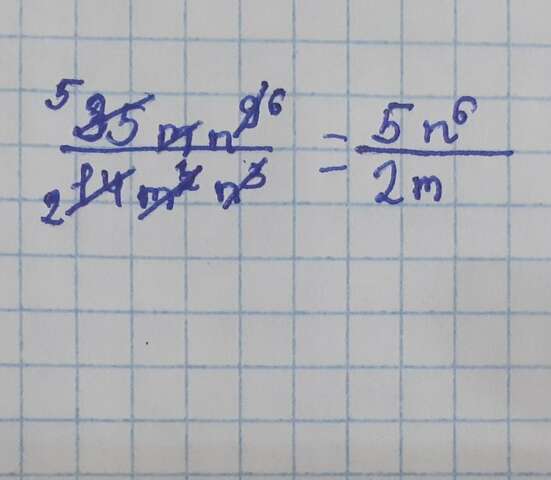 5 35 m n⁹ 6 / 2 14 m² n³ = 5 n⁶ / 2 m